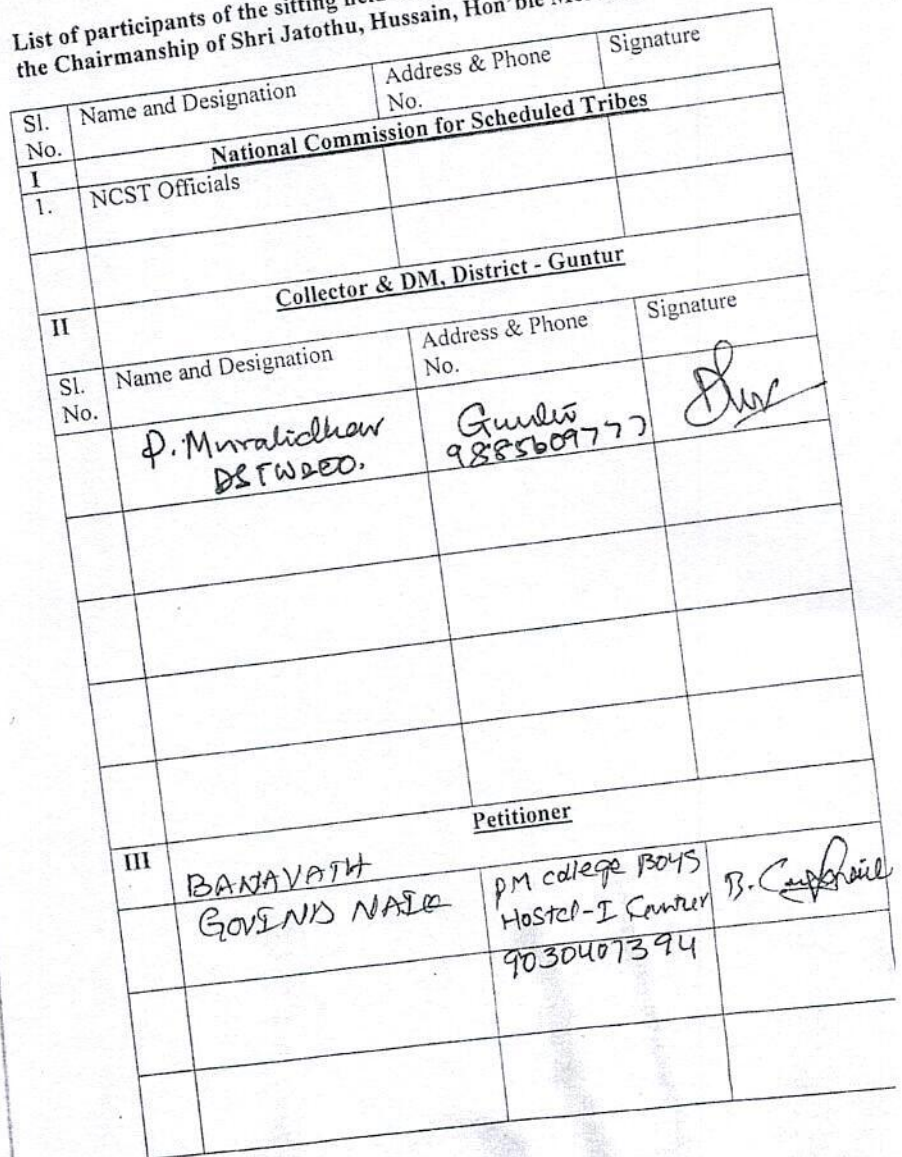 List of participants of the sitting
the Chairmanship of Shri Jatothu, Hussain, Hon'ble
Sl. No. Name and Designation Address & Phone No. Signature
I National Commission for Scheduled Tribes
1. NCST Officials
II Collector & DM, District - Guntur
Sl. No. Name and Designation Address & Phone No. Signature
P. Muralidhar Guntur
9885609777
III Petitioner
BANAVATH PM college BOYS
GOVIND NAIK Hostel-I Guntur
9030407394